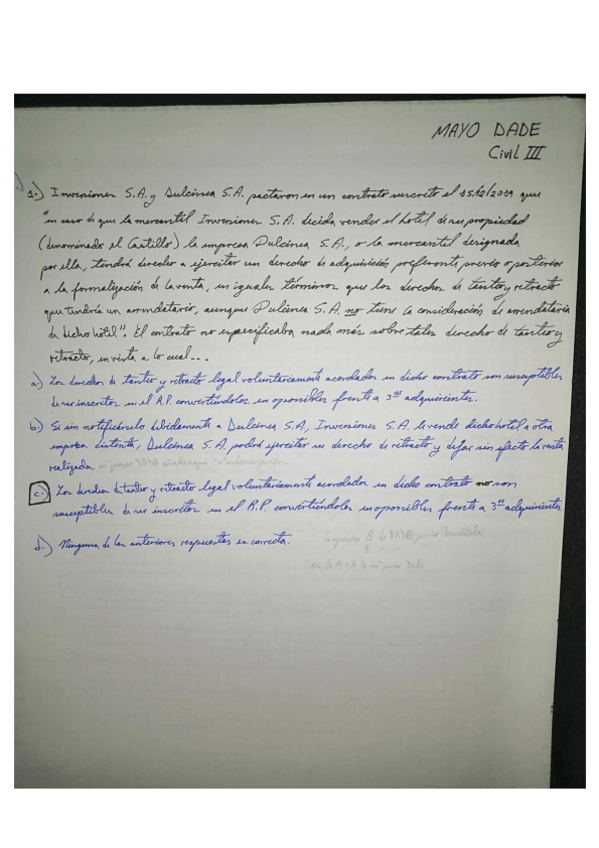 MAYO DADE
Civil III
1.) Inversiones S.A. y Dulcinea S.A. pactaron en un contrato suscrito el que
"en caso de que la mercantil Inversiones S.A. decida vender el hotel de su propiedad
(denominado el Castillo) la empresa Dulcinea S.A., o la mercantil designada
por ella, tendrá derecho a ejercitar un derecho de adquisición preferente previo o posterior
a la formalización de la venta, en iguales términos que los derechos de tanteo y retracto
que tendría un arrendatario, aunque Dulcinea S.A. no tiene la consideración de arrendataria
de dicho hotel". El contrato no especificaba nada más sobre tales derecho de tanteo y
retracto, en vista a lo cual...
a.) Los derechos de tanteo y retracto legal voluntariamente acordados en dicho contrato son susceptibles
de ser inscritos en el R.P. convirtiéndolos en oponibles frente a 3os adquirientes.
b.) Si sin notificárselo debidamente a Dulcinea S.A., Inversiones S.A. le vende dicho hotel a otra
empresa distinta, Dulcinea S.A. podrá ejercitar su derecho de retracto y dejar sin efecto la venta
realizada.
c.) Los derechos de tanteo y retracto legal voluntariamente acordados en dicho contrato no son
susceptibles de ser inscritos en el R.P. convirtiéndolos en oponibles frente a 3os adquirientes
d.) Ninguna de las anteriores respuestas es correcta.